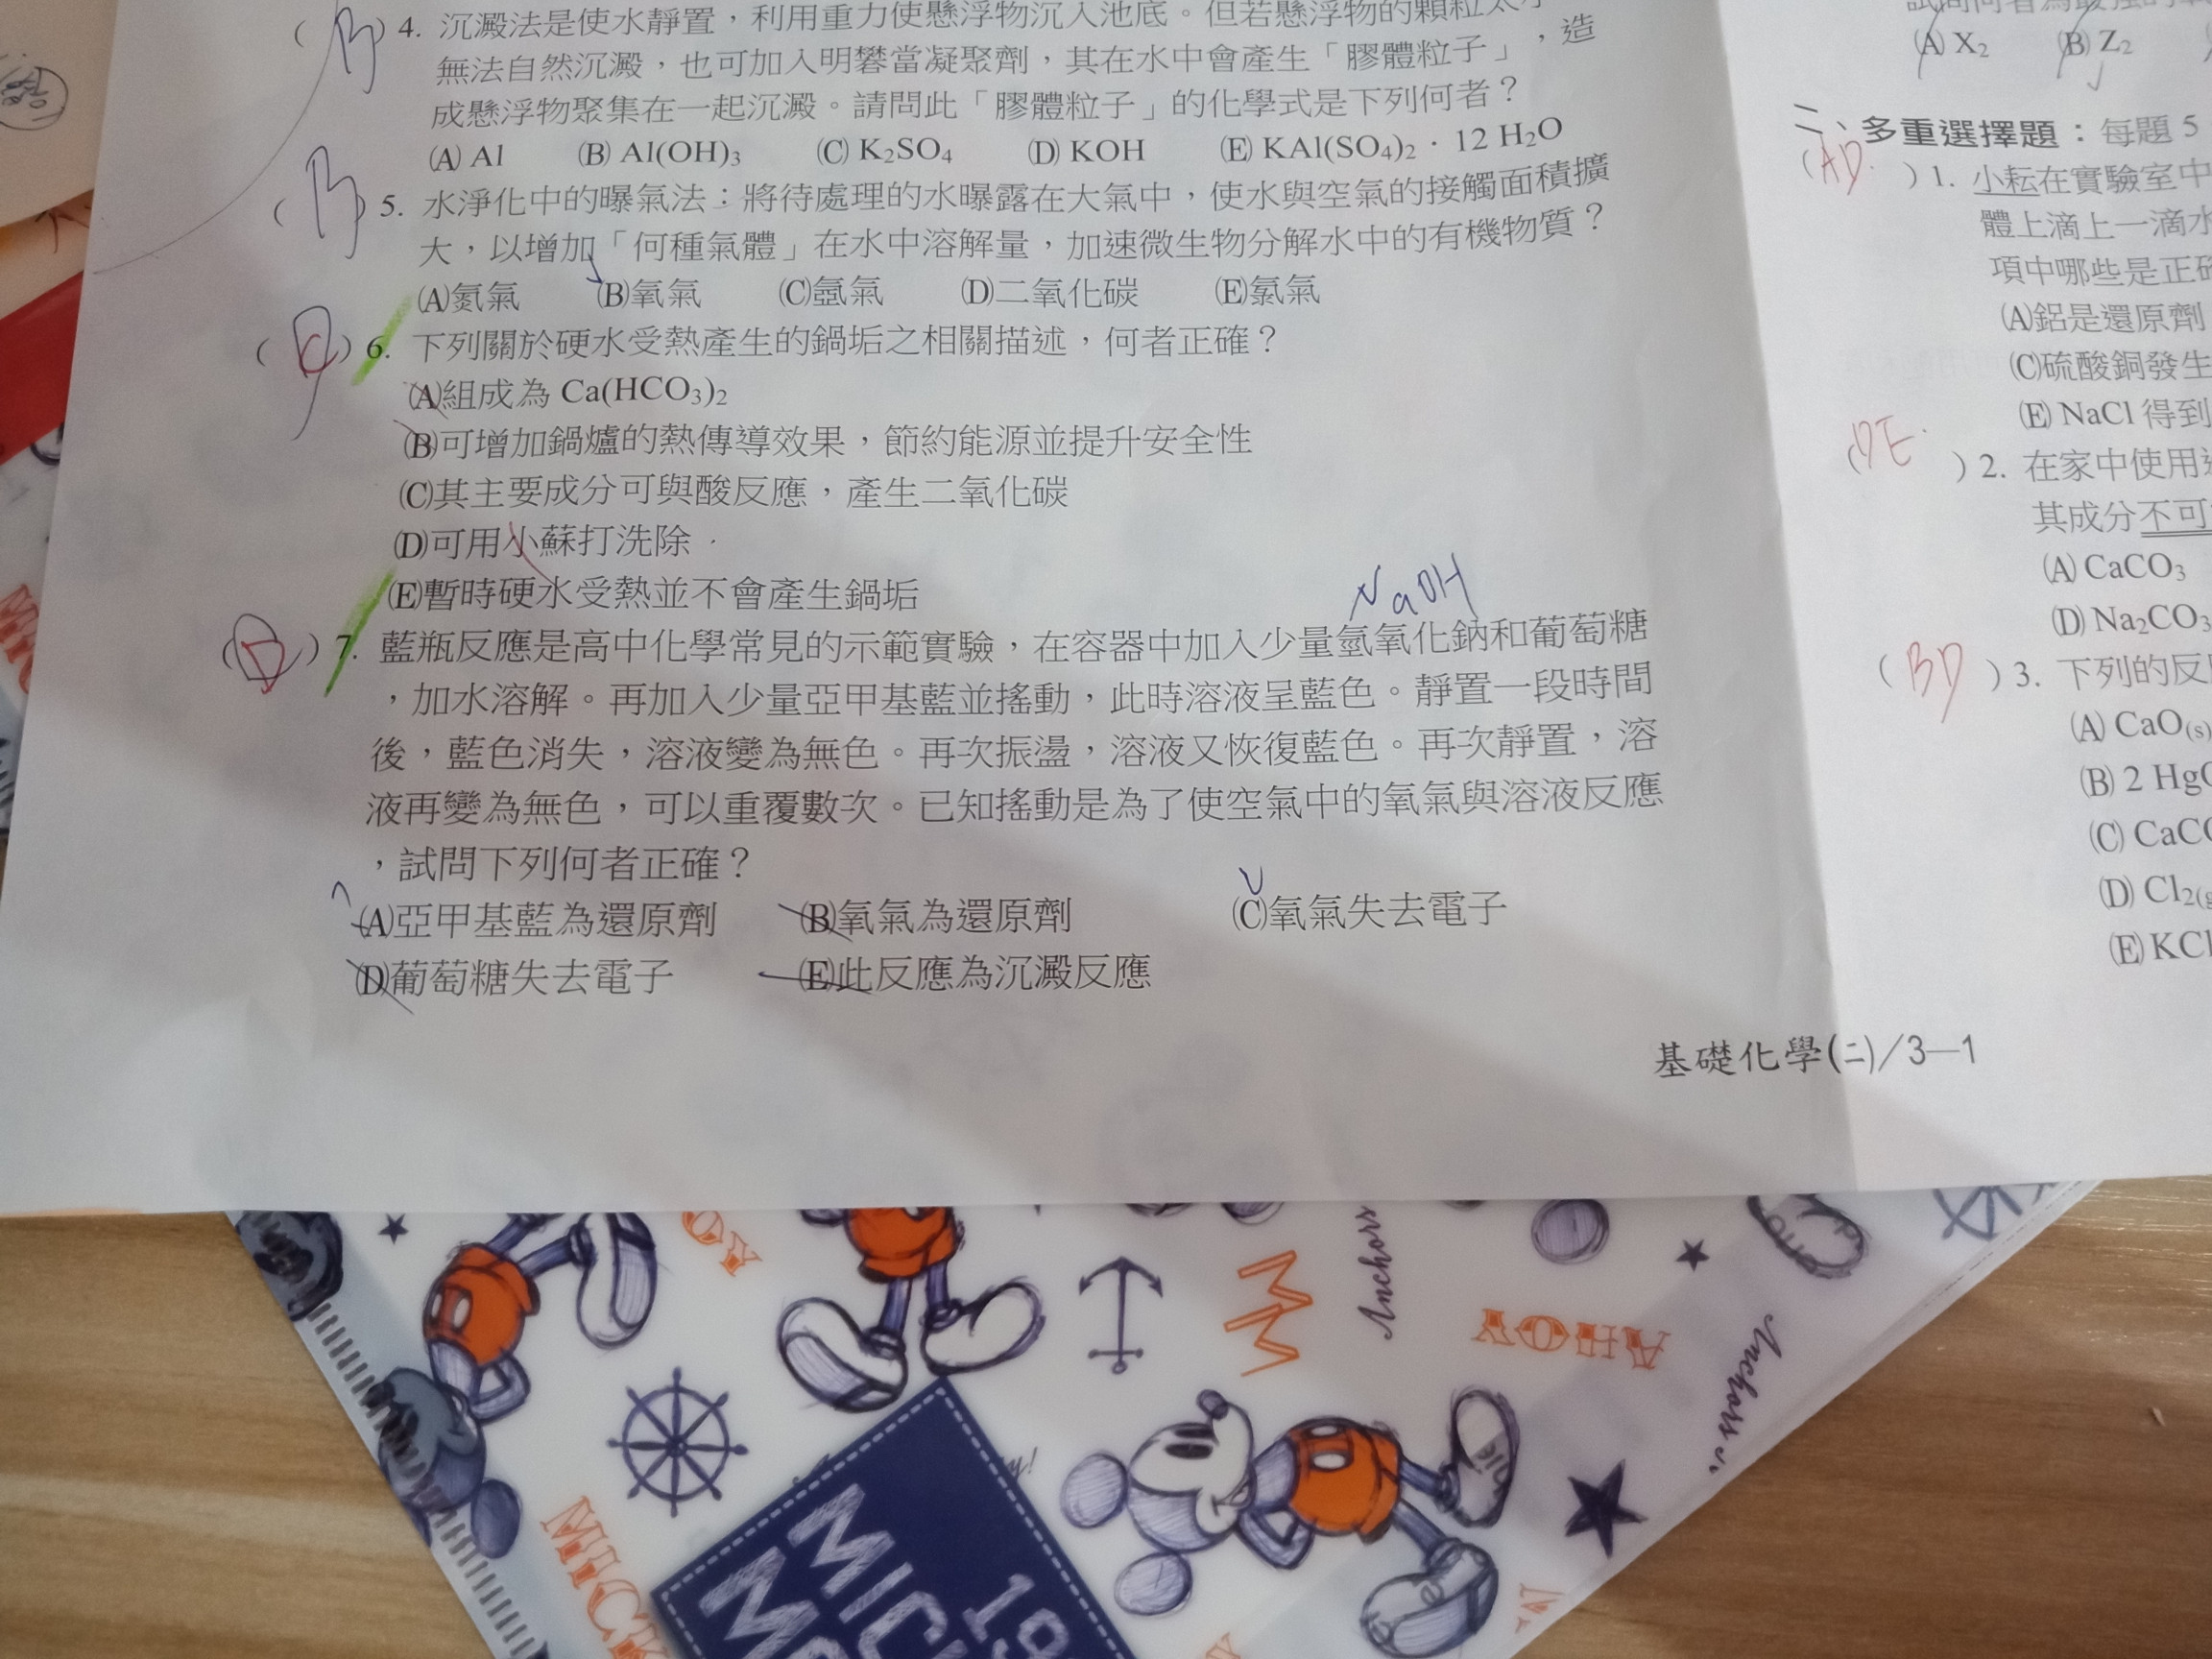 ( B ) 4. 沉澱法是使水靜置，利用重力使懸浮物沉入池底。但若懸浮物的顆粒太
無法自然沉澱，也可加入明礬當凝聚劑，其在水中會產生「膠體粒子」，造
成懸浮物聚集在一起沉澱。請問此「膠體粒子」的化學式是下列何者？
(A) Al (B) Al(OH)₃ (C) K₂SO₄ (D) KOH (E) KAl(SO₄)₂．12 H₂O
( B ) 5. 水淨化中的曝氣法：將待處理的水曝露在大氣中，使水與空氣的接觸面積擴
大，以增加「何種氣體」在水中溶解量，加速微生物分解水中的有機物質？
(A)氮氣 (B)氧氣 (C)氬氣 (D)二氧化碳 (E)氯氣
( C ) 6. 下列關於硬水受熱產生的鍋垢之相關描述，何者正確？
(A)組成為 Ca(HCO₃)₂
(B)可增加鍋爐的熱傳導效果，節約能源並提升安全性
(C)其主要成分可與酸反應，產生二氧化碳
(D)可用小蘇打洗除
(E)暫時硬水受熱並不會產生鍋垢
NaOH
( D ) 7. 藍瓶反應是高中化學常見的示範實驗，在容器中加入少量氫氧化鈉和葡萄糖
，加水溶解。再加入少量亞甲基藍並搖動，此時溶液呈藍色。靜置一段時間
後，藍色消失，溶液變為無色。再次振盪，溶液又恢復藍色。再次靜置，溶
液再變為無色，可以重覆數次。已知搖動是為了使空氣中的氧氣與溶液反應
，試問下列何者正確？
(A)亞甲基藍為還原劑 (B)氧氣為還原劑 (C)氧氣失去電子
(D)葡萄糖失去電子 (E)此反應為沉澱反應
基礎化學(二)/3—1
(A) X₂ (B) Z₂
二、多重選擇題：每題 5
( AD ) 1. 小耘在實驗室中
體上滴上一滴水
項中哪些是正確
(A)鋁是還原劑
(C)硫酸銅發生
(E) NaCl 得到
( DE ) 2. 在家中使用
其成分不可
(A) CaCO₃
(D) Na₂CO₃
( BD ) 3. 下列的反
(A) CaO(s)
(B) 2 Hg
(C) CaC
(D) Cl₂(g
(E) KCl
Anchors
AHOY
Anchors
MICK
MIC
19